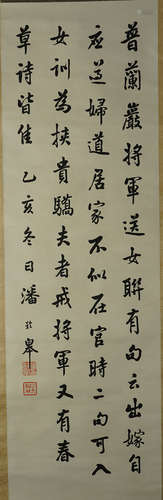 普蘭巖將軍送女聯有句云出嫁自
应遵婦道居家不似在官時二句可入
女訓為挟貴驕夫者戒將軍又有春
草詩皆佳 乙亥冬日潘於皋